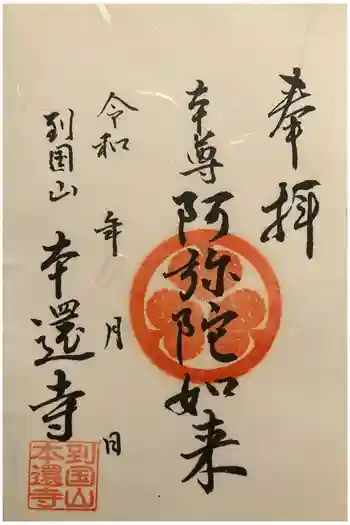 奉拝
本尊 阿弥陀如来
令和 年 月 日
到国山 本還寺
到国山
本還寺